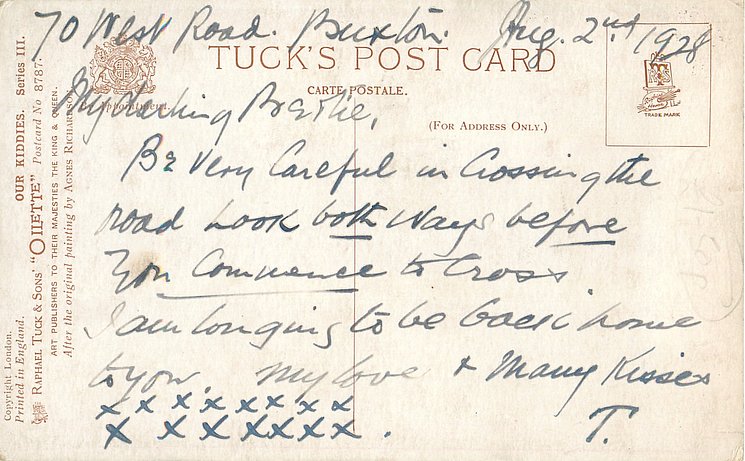 70 West Road. Buxton. Aug. 2nd 1928
TUCK'S POST CARD
CARTE POSTALE.
(FOR ADDRESS ONLY.)
By Appointment.
TRADE MARK
My darling Bertie,
Be Very Careful in Crossing the
road Look both Ways before
You Commence to Cross
I am longing to be back home
to you. My love & Many Kisses
x x x x x x x x
x x x x x x x . T.
OUR KIDDIES. Series III.
RAPHAEL TUCK & SONS' "OILETTE" Postcard No 8787.
ART PUBLISHERS TO THEIR MAJESTIES THE KING & QUEEN.
After the original painting by AGNES RICHARDSON
Copyright London.
Printed in England.